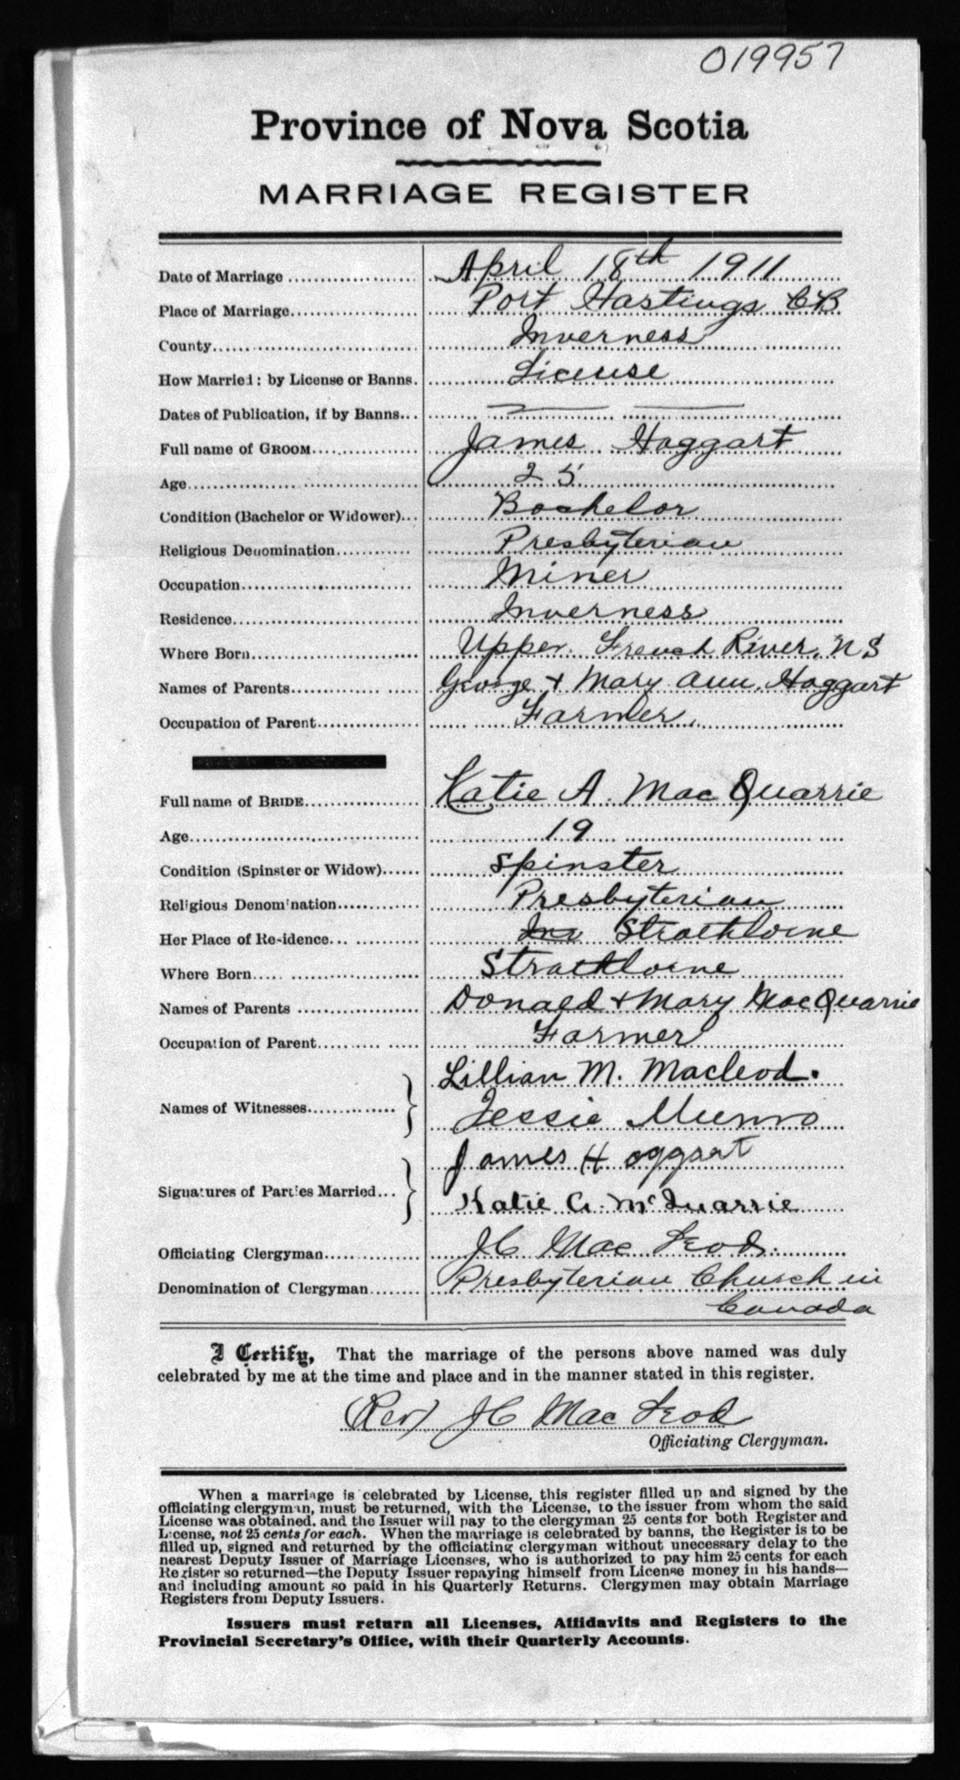 019957
Province of Nova Scotia
MARRIAGE REGISTER
Date of Marriage April 18th 1911
Place of Marriage Port Hastings CB
County Inverness
How Married: by License or Banns. License
Dates of Publication, if by Banns
Full name of GROOM James Hoggart
Age 25
Condition (Bachelor or Widower) Bachelor
Religious Denomination Presbyterian
Occupation Miner
Residence Inverness
Where Born Upper French River, NS
Names of Parents George + Mary Ann Hoggart
Occupation of Parent Farmer
Full name of BRIDE Katie A. MacQuarrie
Age 19
Condition (Spinster or Widow) Spinster
Religious Denomination Presbyterian
Her Place of Residence Inv Strathlorne
Where Born Strathlorne
Names of Parents Donald + Mary MacQuarrie
Occupation of Parent Farmer
Lillian M. Macleod.
Names of Witnesses
Jessie Munro
James Hoggart
Signatures of Parties Married
Katie A. McQuarrie
Officiating Clergyman JC MacLeod.
Denomination of Clergyman Presbyterian Church in
Canada
I Certify, That the marriage of the persons above named was duly
celebrated by me at the time and place and in the manner stated in this register.
(Rev) JC MacLeod
Officiating Clergyman.
When a marriage is celebrated by License, this register filled up and signed by the
officiating clergyman, must be returned, with the License, to the issuer from whom the said
License was obtained, and the Issuer will pay to the clergyman 25 cents for both Register and
License, not 25 cents for each. When the marriage is celebrated by banns, the Register is to be
filled up, signed and returned by the officiating clergyman without unnecessary delay to the
nearest Deputy Issuer of Marriage Licenses, who is authorized to pay him 25 cents for each
Register so returned—the Deputy Issuer repaying himself from License money in his hands—
and including amount so paid in his Quarterly Returns. Clergymen may obtain Marriage
Registers from Deputy Issuers.
Issuers must return all Licenses, Affidavits and Registers to the
Provincial Secretary's Office, with their Quarterly Accounts.